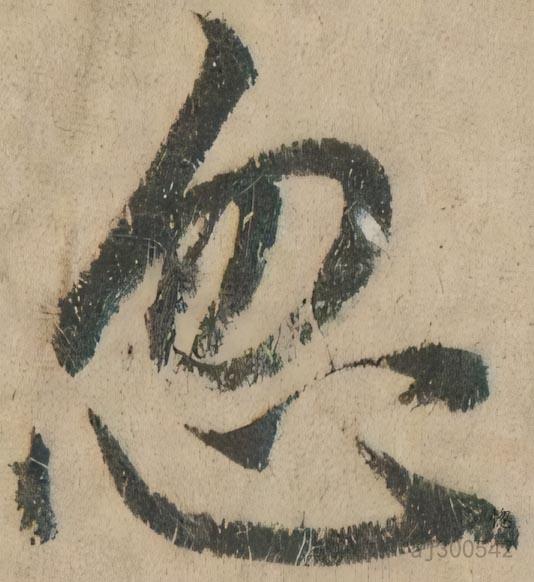 忽
aj300542